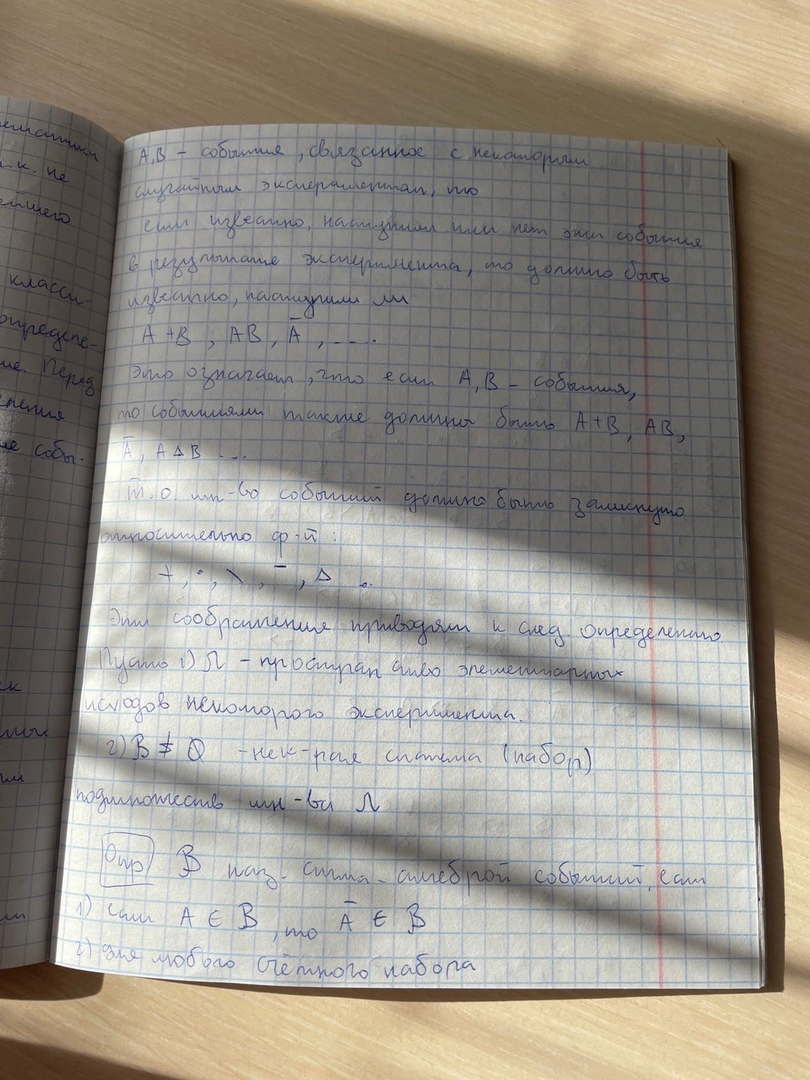 ематики
т.к. не
ейшего
класси-
определе-
ие. Перед
ления
ие собы-
А,В – события, связанное с некоторым
случайным экспериментом, то
если известно, наступили или нет эти события
в результате эксперимента, то должно быть
известно, наступили ли
A+B, AB, Ā, ....
Это означает, что если A,B – события,
то событиями также должны быть A+B, AB,
Ā, A Δ B ...
Т.о. мн-во событий должно быть замкнуто
относительно ф-й:
+, ·, \, ¯, Δ
Эти соображения приводят к след определению
Пусть 1) Ω – простран ство элементарных
исходов некоторого эксперимента.
2) B ≠ Ø -нек-рая система (набор)
подмножеств мн-ва Ω
Опр B наз. сигма-алгеброй событий, если
1) если A ∈ B, то Ā ∈ B
2) для любого счётного набора